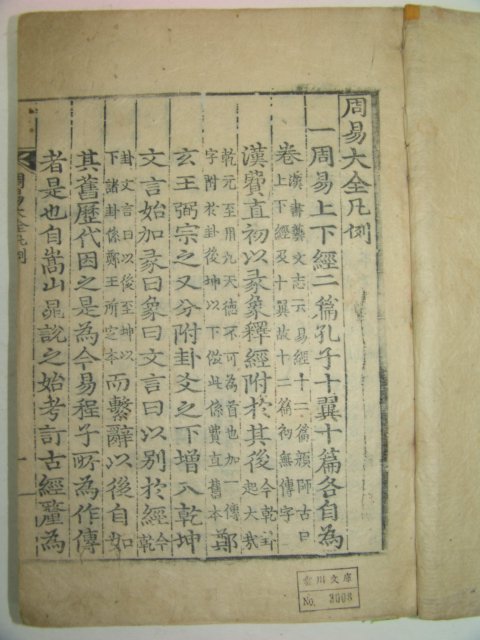 周易大全凡例
一周易上下經二篇孔子十翼十篇各自為
卷
漢書藝文志云易經十二篇顏師古曰
上下經及十翼故十二篇初無傳字
漢費直初以彖象釋經附於其後
今乾卦
起大哉
乾元至用九天德不可為首也加一傳
字附於卦後坤以下倣此係費直舊本
鄭
玄王弼宗之又分附卦爻之下增入乾坤
文言始加彖曰象曰文言曰以別於經
今乾
卦文言曰以後至坤以
下諸卦係鄭王所定本
而繫辭以後自如
其舊歷代因之是為今易程子所為作傳
者是也自嵩山晁說之始考訂古經釐為
周易大全凡例
一
川文庫
No. 3008